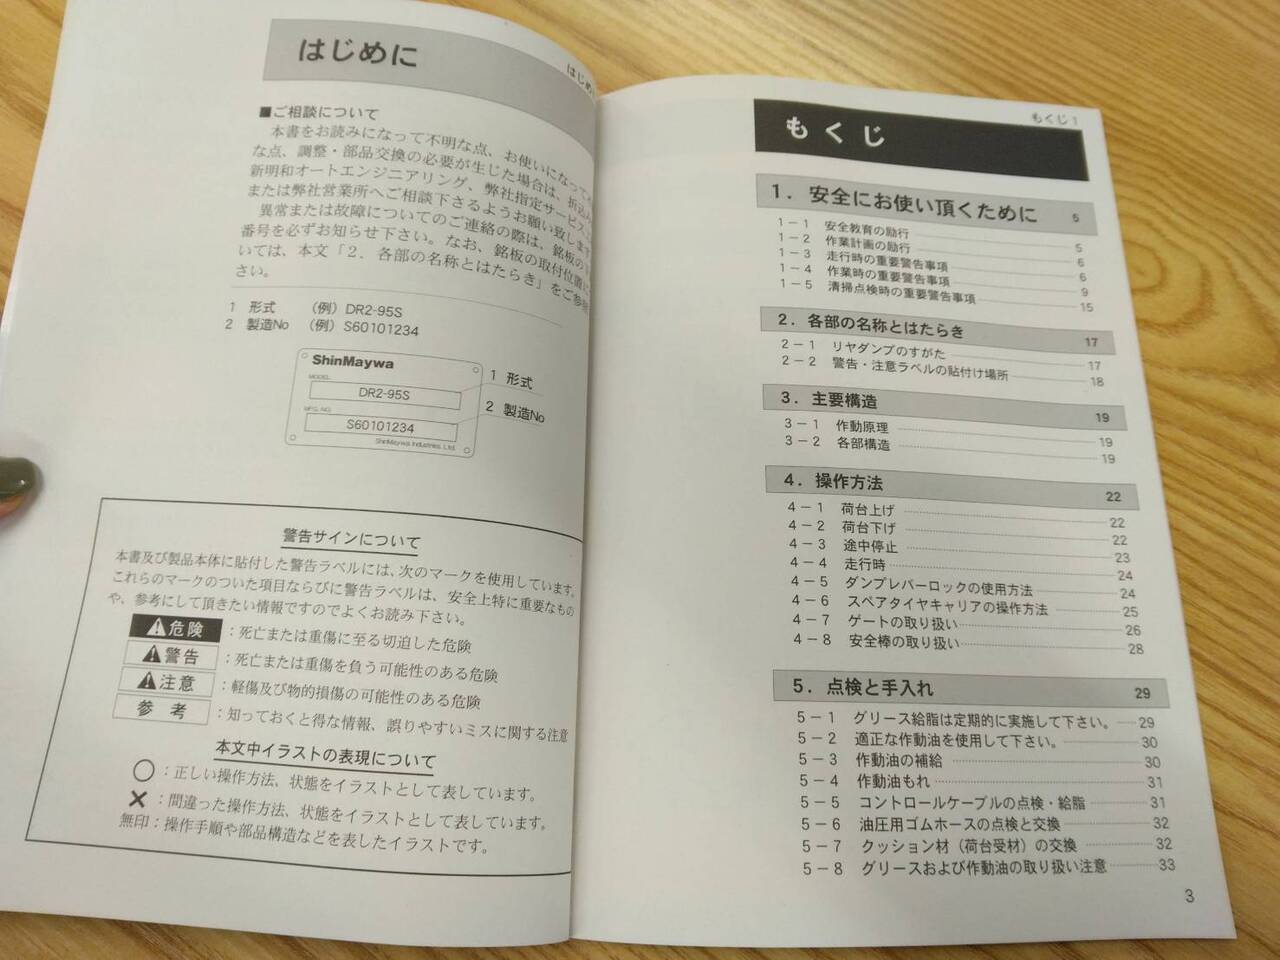 はじめ
はじめに
■ご相談について
本書をお読みになって不明な点、お使いになって
な点、調整・部品交換の必要が生じた場合は、折込み
新明和オートエンジニアリング、弊社指定サービス
または弊社営業所へご相談下さるようお願い致します
異常または故障についてのご連絡の際は、銘板の
番号を必ずお知らせ下さい。なお、銘板の取付位置に
いては、本文「2．各部の名称とはたらき」をご参照
さい。
1 形式 （例）DR2-95S
2 製造No （例）S60101234
ShinMaywa
MODEL
DR2-95S
MFG. NO.
S60101234
ShinMaywa Industries, Ltd.
1 形式
2 製造No
警告サインについて
本書及び製品本体に貼付した警告ラベルには、次のマークを使用しています。
これらのマークのついた項目ならびに警告ラベルは、安全上特に重要なもの
や、参考にして頂きたい情報ですのでよくお読み下さい。
⚠危険：死亡または重傷に至る切迫した危険
⚠警告：死亡または重傷を負う可能性のある危険
⚠注意：軽傷及び物的損傷の可能性のある危険
参考：知っておくと得な情報、誤りやすいミスに関する注意
本文中イラストの表現について
○：正しい操作方法、状態をイラストとして表しています。
×：間違った操作方法、状態をイラストとして表しています。
無印：操作手順や部品構造などを表したイラストです。
もくじ 1
もくじ
1．安全にお使い頂くために 5
1－1 安全教育の励行 5
1－2 作業計画の励行 6
1－3 走行時の重要警告事項 6
1－4 作業時の重要警告事項 9
1－5 清掃点検時の重要警告事項 15
2．各部の名称とはたらき 17
2－1 リヤダンプのすがた 17
2－2 警告・注意ラベルの貼付け場所 18
3．主要構造 19
3－1 作動原理 19
3－2 各部構造 19
4．操作方法 22
4－1 荷台上げ 22
4－2 荷台下げ 22
4－3 途中停止 23
4－4 走行時 24
4－5 ダンプレバーロックの使用方法 24
4－6 スペアタイヤキャリアの操作方法 25
4－7 ゲートの取り扱い 26
4－8 安全棒の取り扱い 28
5．点検と手入れ 29
5－1 グリース給脂は定期的に実施して下さい。 29
5－2 適正な作動油を使用して下さい。 30
5－3 作動油の補給 30
5－4 作動油もれ 31
5－5 コントロールケーブルの点検・給脂 31
5－6 油圧用ゴムホースの点検と交換 32
5－7 クッション材（荷台受材）の交換 32
5－8 グリースおよび作動油の取り扱い注意 33
3